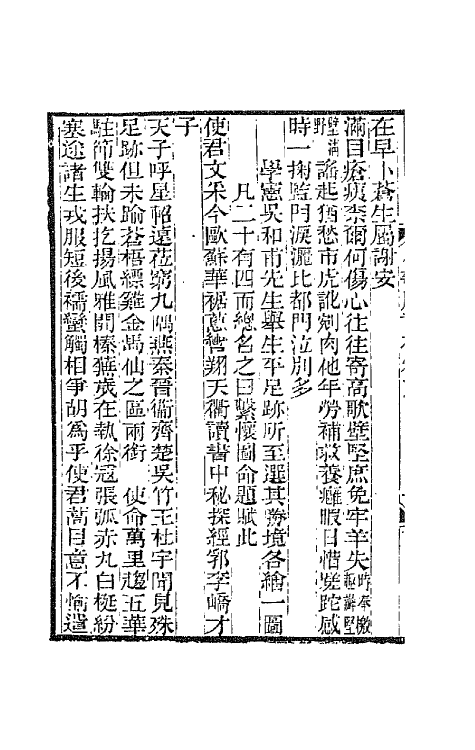 在早卜蒼生屬謝安
滿目瘡痍柰爾何傷心往往寄高歌壁堅庶免牢羊失時奉檄趣辦堅
壁清野謠起猶愁市虎訛剜肉他年勞補救養癰暇日惜蹉跎感
時一掬監門淚灑比都門泣別多
學憲吳和甫先生舉生平足跡所至選其勝境各繪一圖
凡二十有四而總名之曰繫懷圖命題賦此
使君文采今歐蘇華裾蔥鬱翔天衢讀書中秘探經郛李嶠才
子
天子呼星軺遠莅窮九隅燕秦晉衞齊楚吳竹王杜宇聞見殊
足跡但未踰蒼梧縹緲金馬仙之區兩銜　使命萬里趨五華
駐節雙輪扶扢揚風雅開榛蕪歲在執徐冠張弧赤九白梃紛
塞途諸生戎服短後襦蠻觸相爭胡為乎使君蒿目意不愉遣